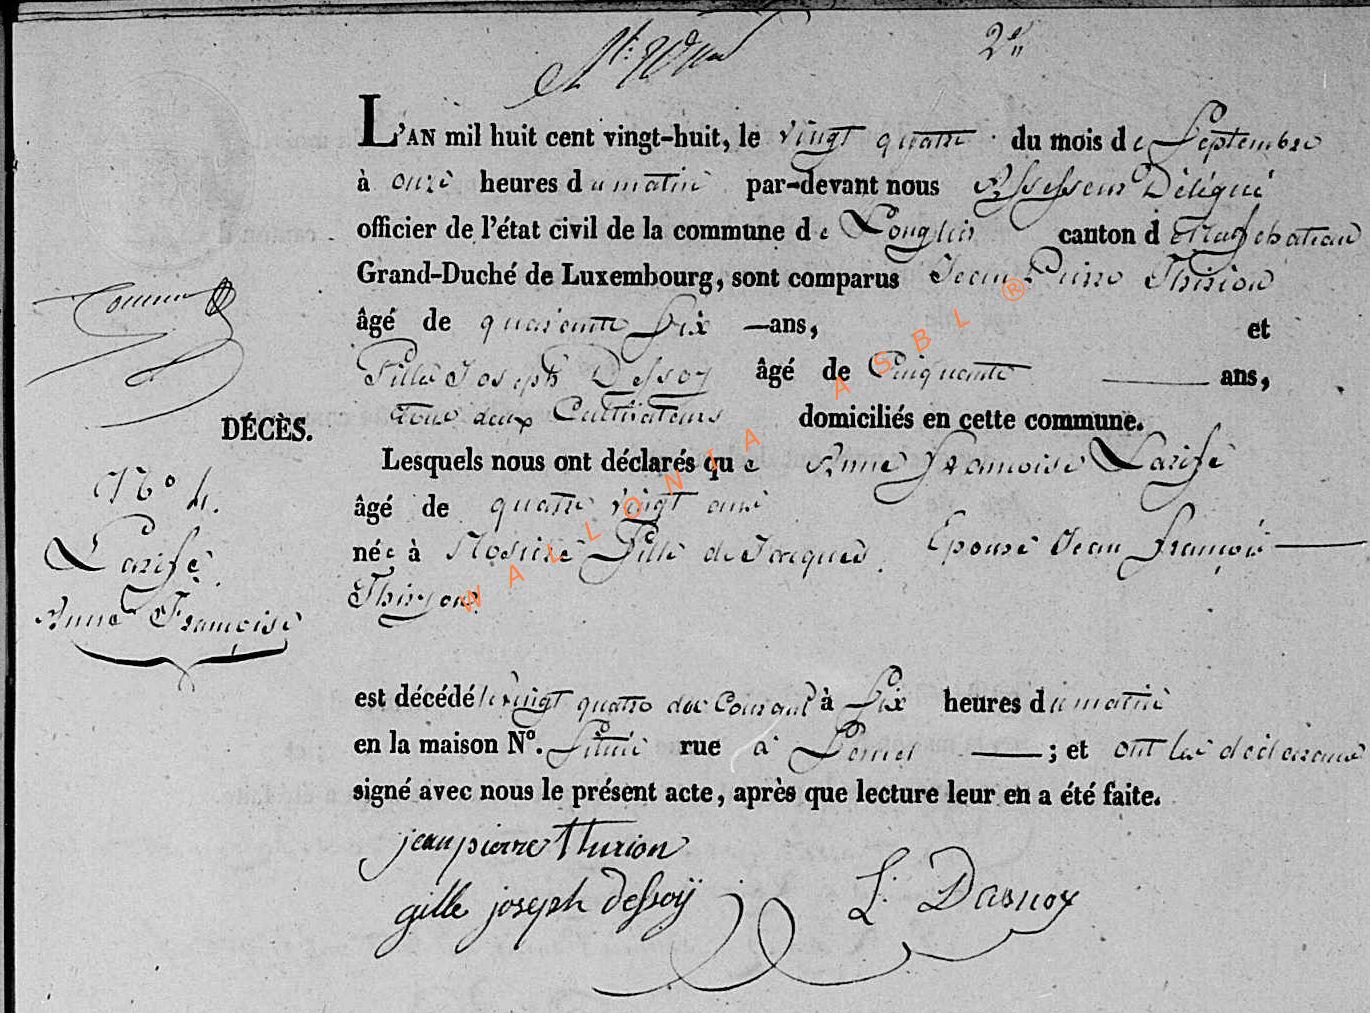 2e
L'AN mil huit cent vingt-huit, le vingt quatre du mois de Septembre
à onze heures du matin par-devant nous Assesseur Délégué
officier de l'état civil de la commune de Longlier canton de Neufchateau
Grand-Duché de Luxembourg, sont comparus Jean Pierre Thirion
âgé de quarante Six —ans, et
Gille Joseph Dessoy âgé de Cinquante ——— ans,
tous deux Cultivateurs domiciliés en cette commune.
DÉCÈS.
Lesquels nous ont déclarés que Anne françoise Larifé
âgé de quatre vingt ans
N° 4.
Larifé
Anne Françoise
née à fille de Jacques. Epouse Jean françois ———
Thiryon
est décédé le vingt quatre du Courant à Six heures du matin
en la maison N°. Située rue à ——— ; et ont les déclarans
signé avec nous le présent acte, après que lecture leur en a été faite.
jean pierre thirion
gille joseph dessoÿ L. Dasnoy
WALLONIA ASBL ®